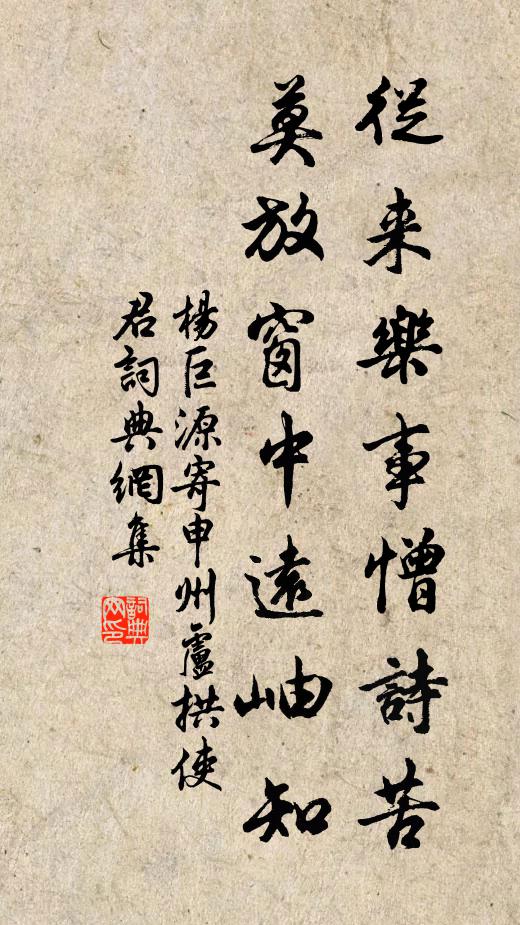 從来樂事憎詩苦
莫放窗中遠岫知
楊巨源寄申州盧拱使
君詞典網集
詞典
网印